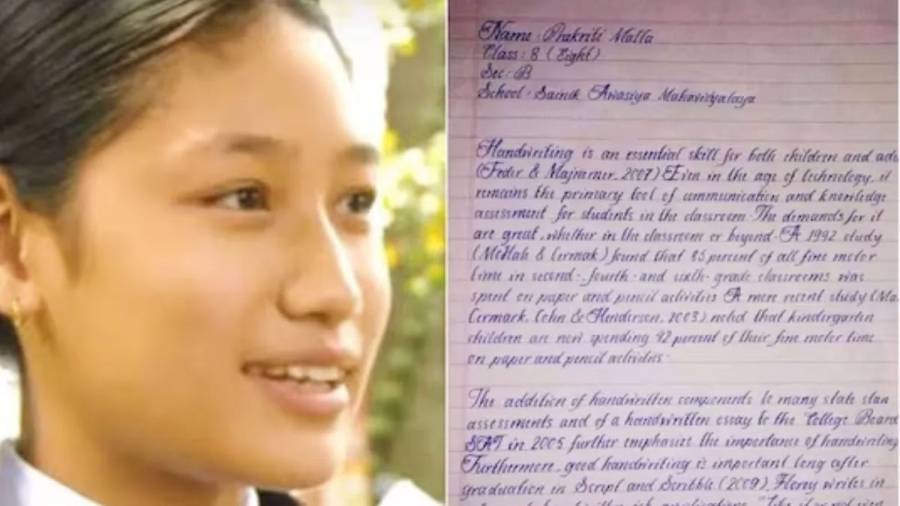 Name : Prakriti Malla
Class : 8 ( Eight)
Sec : B
School : Sainik Awasiya Mahavidyalaya
Handwriting is an essential skill for both children and adu
(Fedir & Majnemer, 2007) Even in the age of technology, it
remains the primary tool of communication and knowledge
assessment for students in the classroom. The demands for it
are great, whether in the classroom or beyond. A 1992 study
(McHale & Cermak) found that 85 percent of all fine motor
time in second-, fourth- and sixth- grade classrooms was
spent on paper and pencil activities. A more recent study (Ma
Cermark, Cohn & Henderson, 2003) noted that kindergarten
children are now spending 42 percent of their fine motor time
on paper and pencil activities.
The addition of handwritten components to many state stan
assessments and of a handwritten essay to the College Board
SAT in 2005 further emphasize the importance of handwriting
Furthermore, good handwriting is important long after
graduation in Script and Scribble (2009), Florey writes in